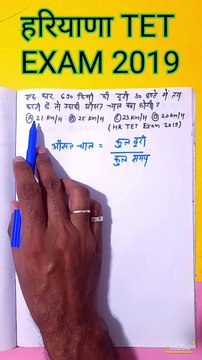 हरियाणा TET
EXAM 2019
एक कार 690 किमी की दूरी 30 घण्टे में तय
करती है तो उसकी औसत चाल क्या होगी ?
(A) 21 KM/H (B) 25 KM/H (C) 23 KM/H (D) 20 KM/H
( HR TET Exam 2019)
औसत चाल = कुल दूरी
कुल समय